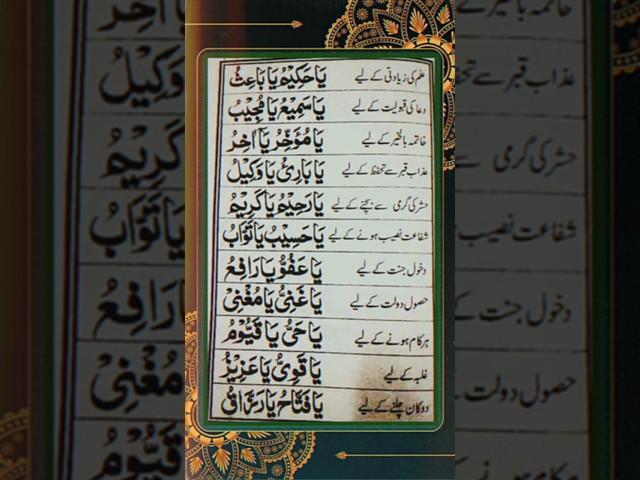 علم کی زیادتی کے لیے یَا حَکِیْمُ یَا بَاعِثُ
دعا کی قبولیت کے لیے یَا سَمِیْعُ یَا مُجِیْبُ
خاتمہ بالخیر کے لیے یَا مُؤَخِّرُ یَا اٰخِرُ
عذاب قبر سے تحفظ کے لیے یَا بَارِئُ یَا وَکِیْلُ
حشر کی گرمی سے بچنے کے لیے یَا رَحِیْمُ یَا کَرِیْمُ
شفاعت نصیب ہونے کے لیے یَا حَسِیْبُ یَا تَوَّابُ
دخول جنت کے لیے یَا عَفُوُّ یَا رَافِعُ
حصول دولت کے لیے یَا غَنِیُّ یَا مُغْنِیْ
ہر کام ہونے کے لیے یَا حَیُّ یَا قَیُّوْمُ
غلبہ کے لیے یَا قَوِیُّ یَا عَزِیْزُ
دوکان چلنے کے لیے یَا فَتَّاحُ یَا رَزَّاقُ